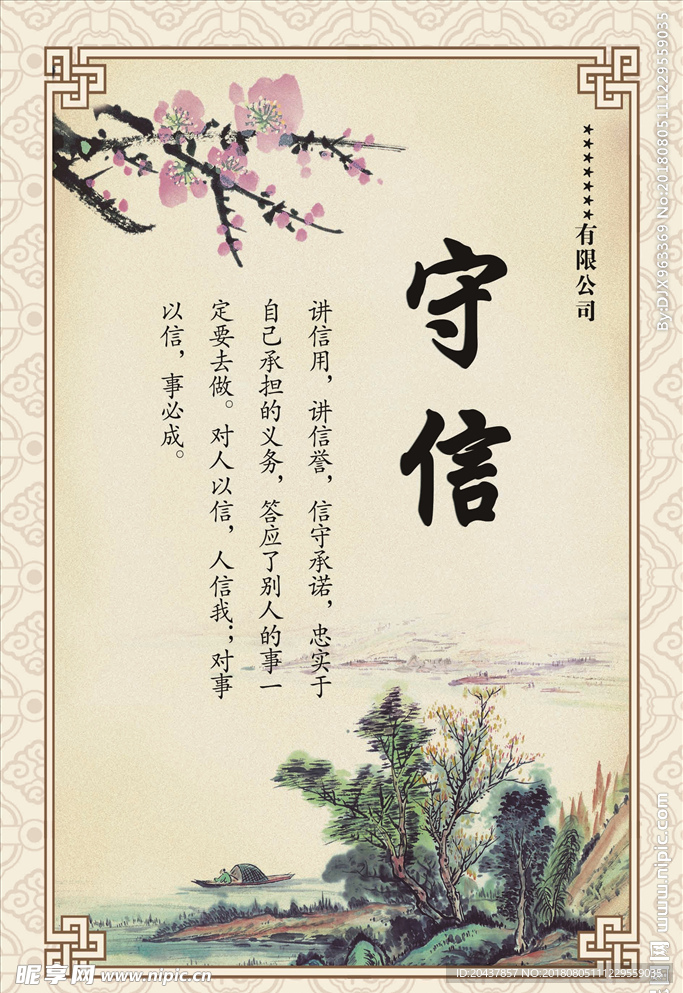 ★★★★★★★★有限公司
守信
讲信用，讲信誉，信守承诺，忠实于
自己承担的义务，答应了别人的事一
定要去做。对人以信，人信我；对事
以信，事必成。
By:DJX963369 No:20180805111229559035
www.nipic.com
昵享网 www.nipic.cn
ID:20437857 NO:20180805111229559035